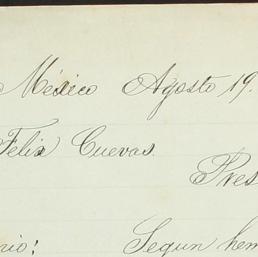 Mexico Agosto 19.
Felix Cuevas.
Pres
rio! Segun hem